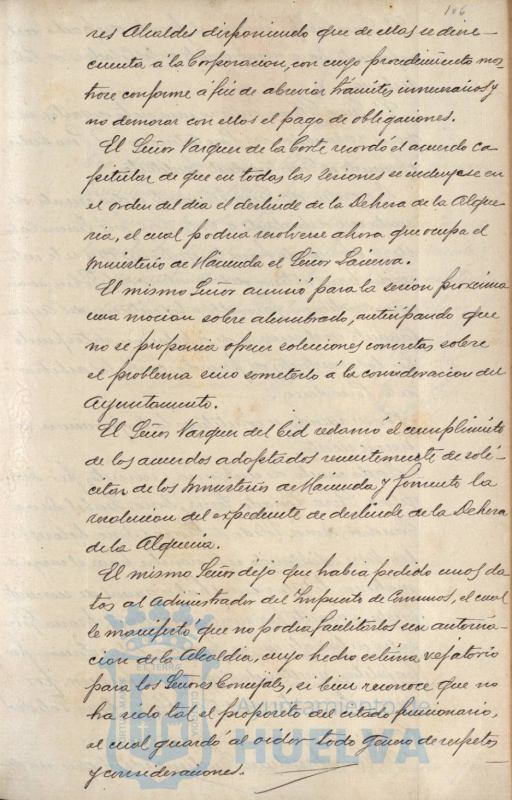 106
res Alcaldes disponiendo que de ellas se diere
cuenta á la Corporacion, con cuyo procedimiento mos-
trose conforme á fin de abreviar trámites innecesarios y
no demorar con ellos el pago de obligaciones.
El Señor Vazquez de la Corte recordó el acuerdo ca-
pitular de que en todas las sesiones se incluyese en
el orden del dia el deslinde de la Dehesa de la Alque-
ria, el cual podria resolverse ahora que ocupa el
Ministerio de Hacienda el Señor Lacierva.
El mismo Señor anunció para la sesion proxima
una mocion sobre alumbrado, anticipando que
no se proponia ofrecer soluciones concretas sobre
el problema sino someterlo á la consideracion del
Ayuntamiento.
El Señor Vazquez del Cid reclamó el cumplimiento
de los acuerdos adoptados recientemente de soli-
citar de los Ministerios de Hacienda y Fomento la
resolucion del expediente de deslinde de la Dehesa
de la Alqueria.
El mismo Señor dijo que habia pedido unos da-
tos al Administrador del Impuesto de Consumos, el cual
le manifestó que no podia facilitarlos sin autoriza-
cion de la Alcaldia, cuyo hecho estima vejatorio
para los Señores Concejales, si bien reconoce que no
ha sido tal el proposito del citado funcionario,
el cual guardó al orador todo género de respetos
y consideraciones.
EL TERRA
Ayuntamiento de
HUELVA